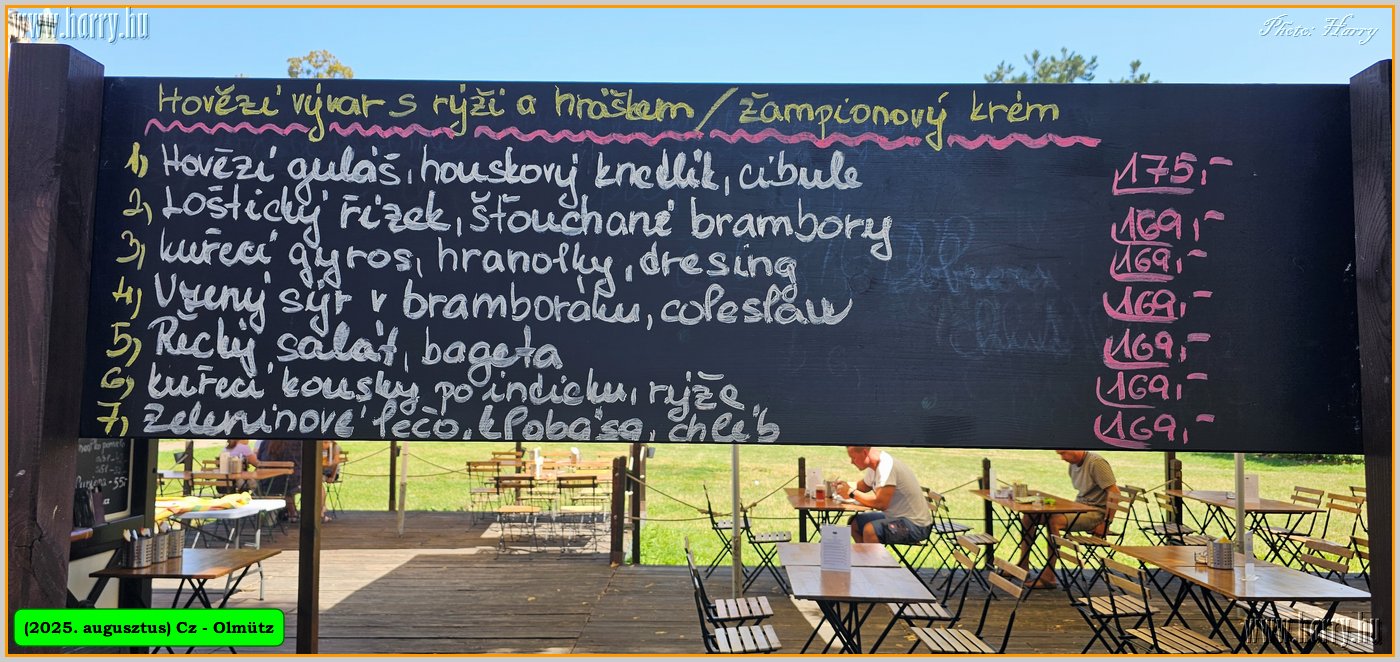 www.harry.hu
Photo: Harry
Hovězí vývar s rýží a hráškem / žampionový krém
1) Hovězí guláš, houskový knedlík, cibule 175,-
2) Loštický řízek, šťouchané brambory 169,-
3) kuřecí gyros, hranolky, dresing 169,-
4) Uzený sýr v bramboráku, coleslaw 169,-
5) Řecký salát, bageta 169,-
6) kuřecí kousky po indicku, rýže 169,-
7) Zeleninové lečo, klobása, chléb 169,-
(2025. augusztus) Cz - Olmütz
www.harry.hu